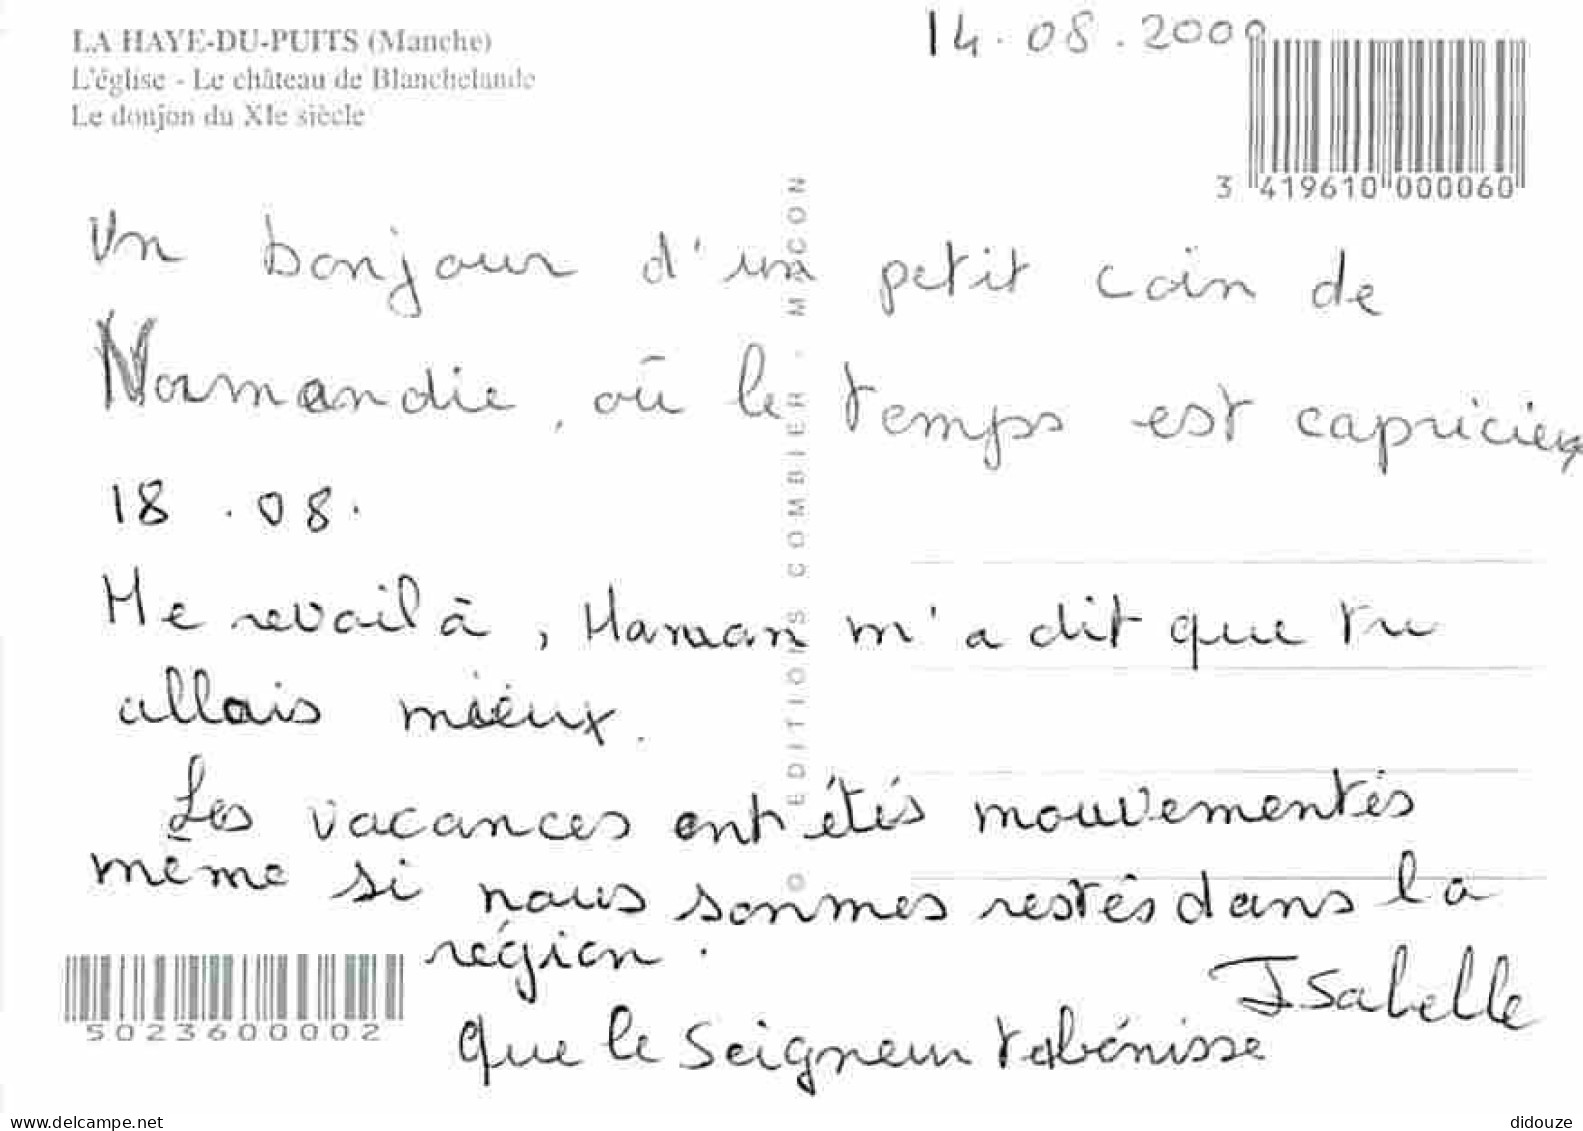 LA HAYE-DU-PUITS (Manche)
L'église - Le château de Blanchelande
Le donjon du XIe siècle
14.08.2000
3 419610 000060
Un bonjour d'un petit coin de
Normandie, où le temps est capricieux
18.08.
Me revoilà, Maman m'a dit que tu
allais mieux.
Les vacances ont étés mouvementés
même si nous sommes restés dans la
région.
Isabelle
Que le Seigneur te bénisse
5023600002
© EDITIONS COMBIER - MACON
www.delcampe.net
didouze